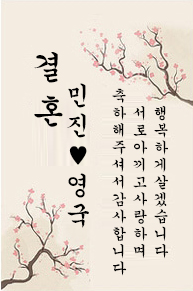 결혼
민진♥영국
행복하게살겠습니다
서로아끼고사랑하며
축하해주셔서감사합니다